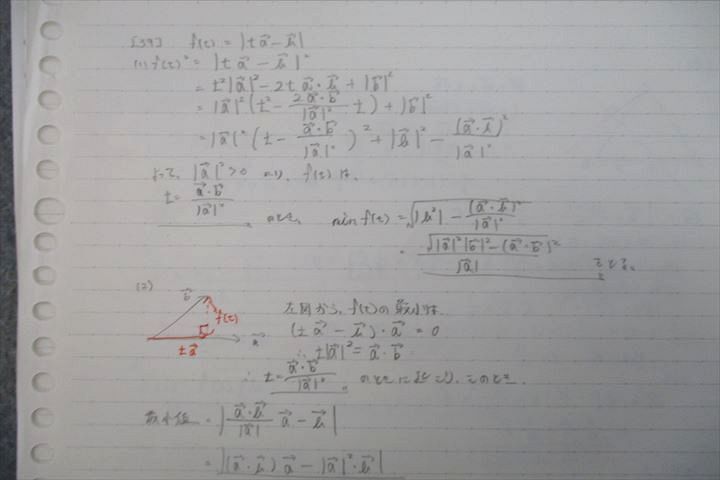 [39] f(t) = |t\vec{a} - \vec{b}|
(1) f(t)^2 = |t\vec{a} - \vec{b}|^2
= t^2|\vec{a}|^2 - 2t\vec{a}・\vec{b} + |\vec{b}|^2
= |\vec{a}|^2 (t^2 - \frac{2\vec{a}・\vec{b}}{|\vec{a}|^2} t) + |\vec{b}|^2
= |\vec{a}|^2 (t - \frac{\vec{a}・\vec{b}}{|\vec{a}|^2})^2 + |\vec{b}|^2 - \frac{(\vec{a}・\vec{b})^2}{|\vec{a}|^2}
よって、|\vec{a}|^2 > 0 より、f(t) は、
t = \frac{\vec{a}・\vec{b}}{|\vec{a}|^2} のとき、 min f(t) = \sqrt{|\vec{b}^2| - \frac{(\vec{a}・\vec{b})^2}{|\vec{a}|^2}}
= \frac{\sqrt{|\vec{a}|^2|\vec{b}|^2 - (\vec{a}・\vec{b})^2}}{|\vec{a}|} をとる。
(2)
\vec{b}
f(t)
\vec{a}
t\vec{a}
左図から、f(t)の最小は、
(t\vec{a} - \vec{b})・\vec{a} = 0
∴ t|\vec{a}|^2 = \vec{a}・\vec{b}
∴ t = \frac{\vec{a}・\vec{b}}{|\vec{a}|^2} のときに起こり、このとき
最小値 = |\frac{\vec{a}・\vec{b}}{|\vec{a}|} \vec{a} - \vec{b}|
= |(\vec{a}・\vec{b})\vec{a} - |\vec{a}|^2・\vec{b}|